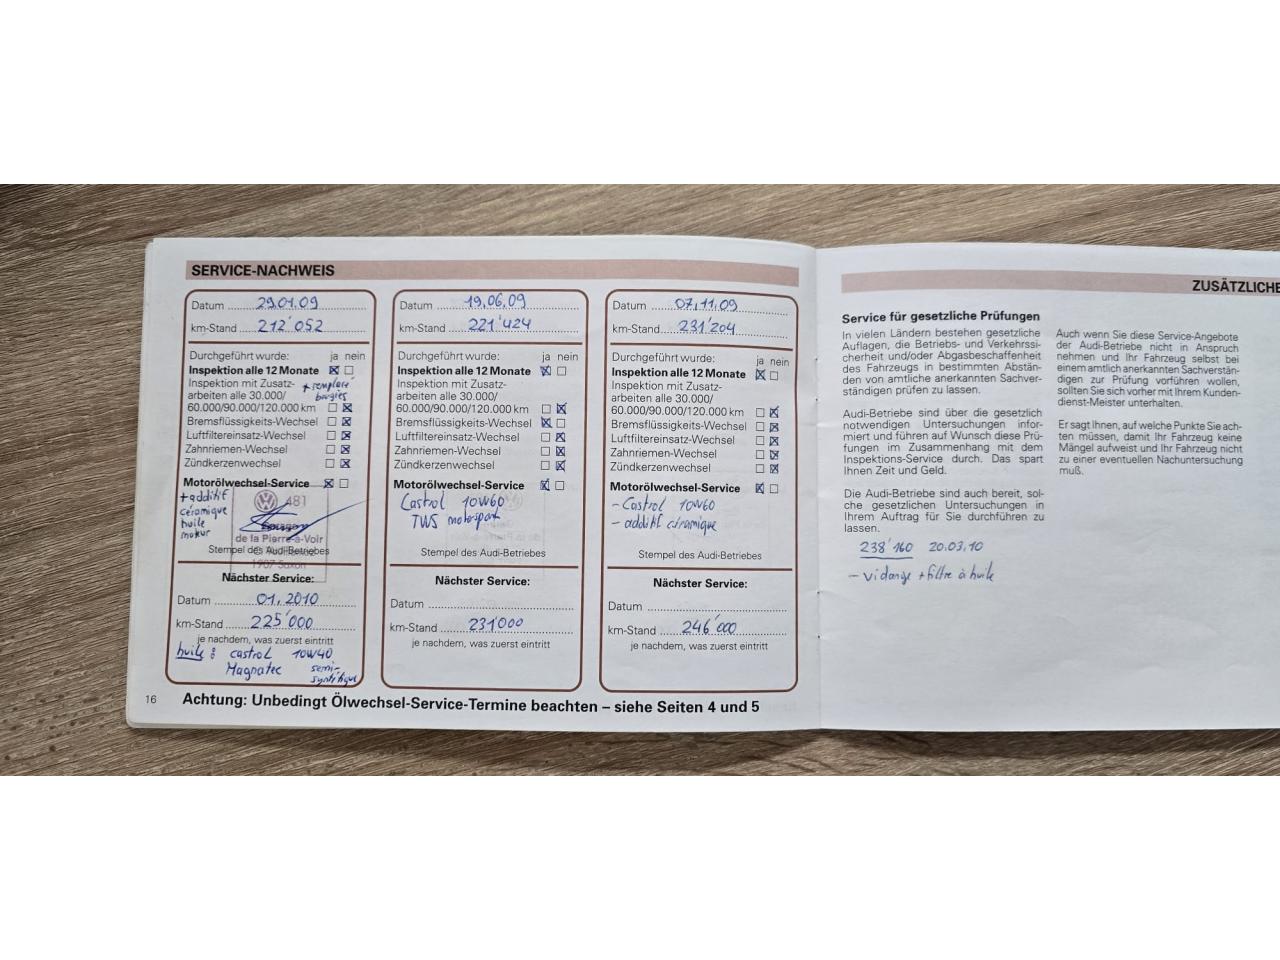 SERVICE-NACHWEIS
Datum 29.01.09
km-Stand 212'052
Durchgeführt wurde: ja nein
Inspektion alle 12 Monate
Inspektion mit Zusatz-
arbeiten alle 30.000/
60.000/90.000/120.000 km
+ remplacé
bougies
Bremsflüssigkeits-Wechsel
Luftfiltereinsatz-Wechsel
Zahnriemen-Wechsel
Zündkerzenwechsel
Motorölwechsel-Service
+ additif
céramique
huile
moteur
481
de la Pierre-à-Voir
1907 Saxon
Stempel des Audi-Betriebes
Nächster Service:
Datum 01.2010
km-Stand 225'000
je nachdem, was zuerst eintritt
huile : castrol 10W40
Magnatec semi-
synthétique
Datum 19.06.09
km-Stand 221'424
Durchgeführt wurde: ja nein
Inspektion alle 12 Monate
Inspektion mit Zusatz-
arbeiten alle 30.000/
60.000/90.000/120.000 km
Bremsflüssigkeits-Wechsel
Luftfiltereinsatz-Wechsel
Zahnriemen-Wechsel
Zündkerzenwechsel
Motorölwechsel-Service
Castrol 10W60
TWS motorsport
Stempel des Audi-Betriebes
Nächster Service:
Datum
km-Stand 231'000
je nachdem, was zuerst eintritt
Datum 07.11.09
km-Stand 231'204
Durchgeführt wurde: ja nein
Inspektion alle 12 Monate
Inspektion mit Zusatz-
arbeiten alle 30.000/
60.000/90.000/120.000 km
Bremsflüssigkeits-Wechsel
Luftfiltereinsatz-Wechsel
Zahnriemen-Wechsel
Zündkerzenwechsel
Motorölwechsel-Service
- Castrol 10W60
- additif céramique
Stempel des Audi-Betriebes
Nächster Service:
Datum
km-Stand 246'000
je nachdem, was zuerst eintritt
16 Achtung: Unbedingt Ölwechsel-Service-Termine beachten – siehe Seiten 4 und 5
ZUSÄTZLICHE
Service für gesetzliche Prüfungen
In vielen Ländern bestehen gesetzliche
Auflagen, die Betriebs- und Verkehrssi-
cherheit und/oder Abgasbeschaffenheit
des Fahrzeugs in bestimmten Abstän-
den von amtliche anerkannten Sachver-
ständigen prüfen zu lassen.
Audi-Betriebe sind über die gesetzlich
notwendigen Untersuchungen infor-
miert und führen auf Wunsch diese Prü-
fungen im Zusammenhang mit dem
Inspektions-Service durch. Das spart
Ihnen Zeit und Geld.
Die Audi-Betriebe sind auch bereit, sol-
che gesetzlichen Untersuchungen in
Ihrem Auftrag für Sie durchführen zu
lassen.
238'160 20.03.10
- vidange + filtre à huile
Auch wenn Sie diese Service-Angebote
der Audi-Betriebe nicht in Anspruch
nehmen und Ihr Fahrzeug selbst bei
einem amtlich anerkannten Sachverstän-
digen zur Prüfung vorführen wollen,
sollten Sie sich vorher mit Ihrem Kunden-
dienst-Meister unterhalten.
Er sagt Ihnen, auf welche Punkte Sie ach-
ten müssen, damit Ihr Fahrzeug keine
Mängel aufweist und Ihr Fahrzeug nicht
zu einer eventuellen Nachuntersuchung
muß.